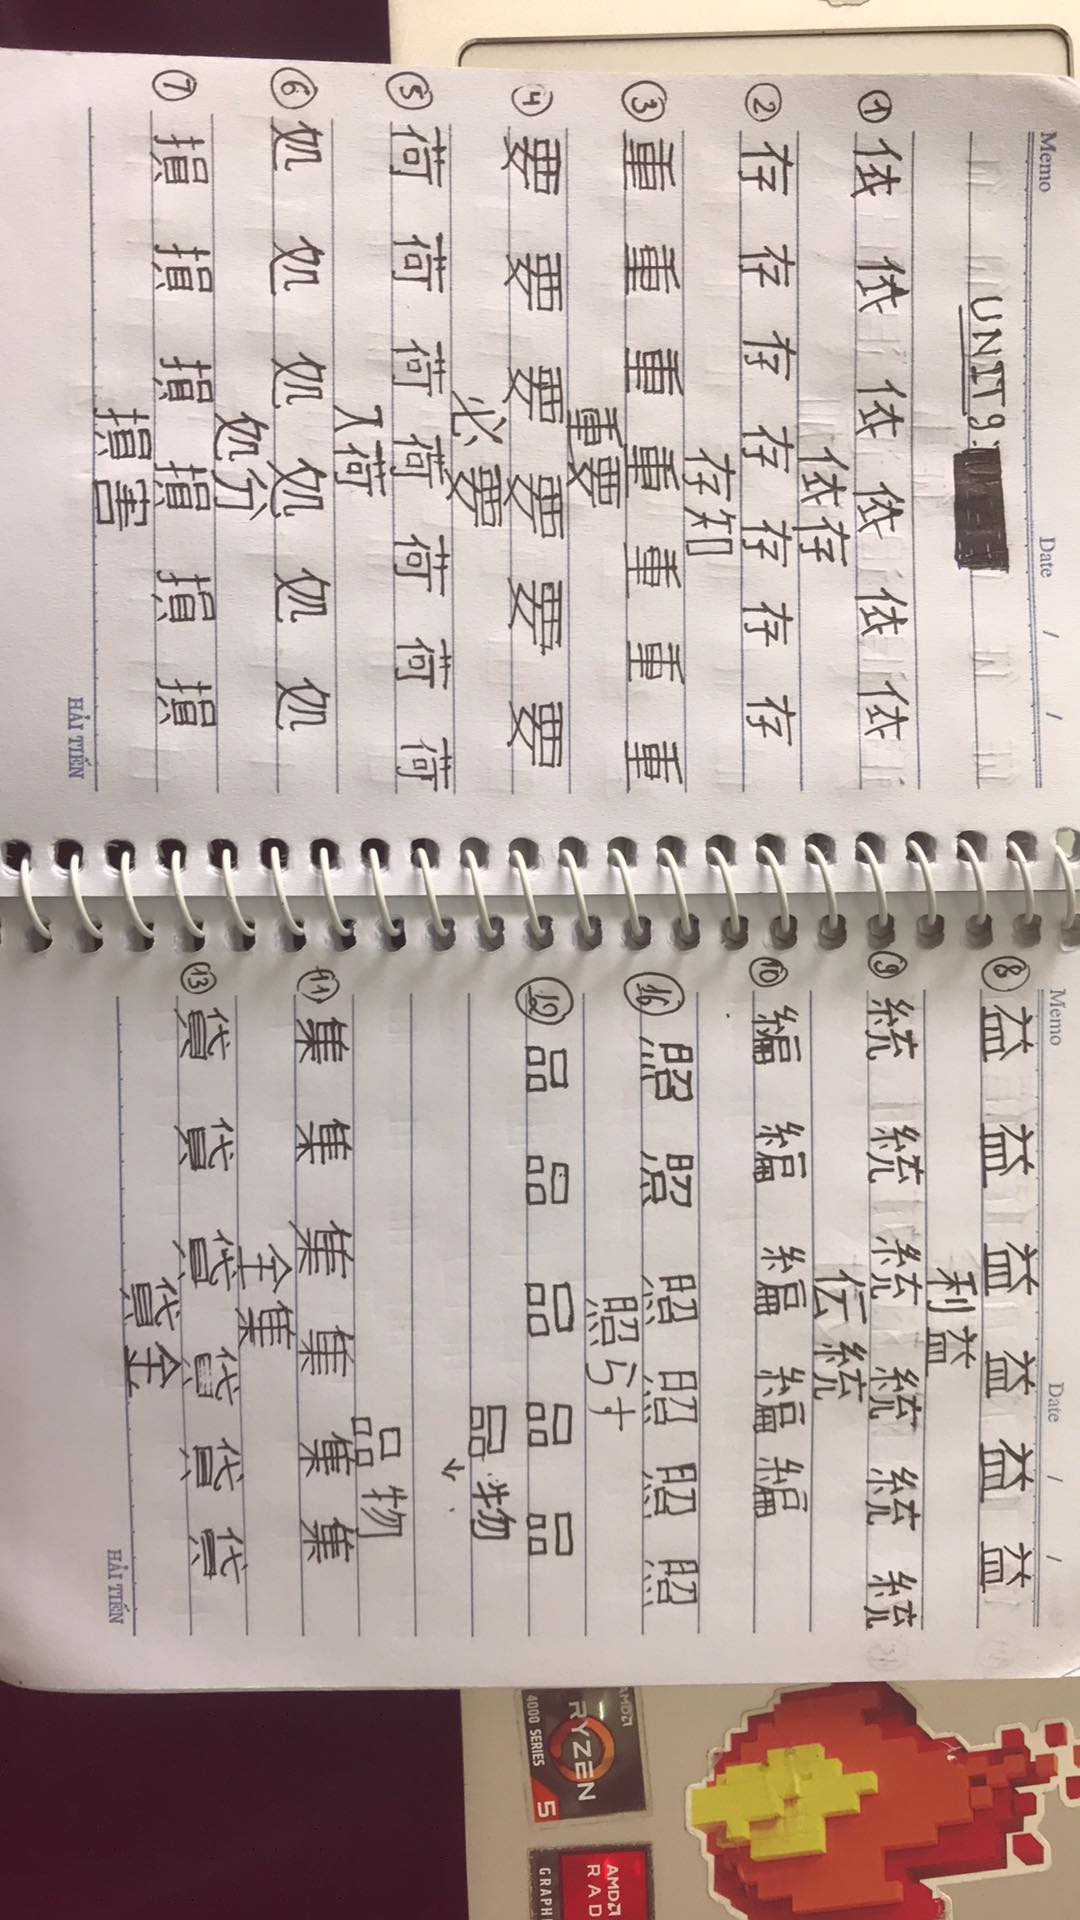 Memo Date / /
UNIT 9
① 依 依 依 依 依 依
依存
② 存 存 存 存 存 存 存
存知
③ 重 重 重 重 重 重 重
重要
④ 要 要 要 要 要 要
必要
⑤ 荷 荷 荷 荷 荷 荷 荷
入荷
⑥ 処 処 処 処 処 処
処分
⑦ 損 損 損 損 損 損
損害
HẢI TIẾN
Memo Date / /
⑧ 益 益 益 益 益 益
利益
⑨ 統 統 統 統 統 統
伝統
⑩ 編 編 編 編 編
⑯ 照 照 照 照 照 照
照らす
⑫ 品 品 品 品 品
品物
↓
品物
⑪ 集 集 集 集 集 集
全集
⑬ 貸 貸 貸 貸 貸 貸
貸金
HẢI TIẾN
AMD
RYZEN 5
4000 SERIES
AMD
RAD
GRAPH